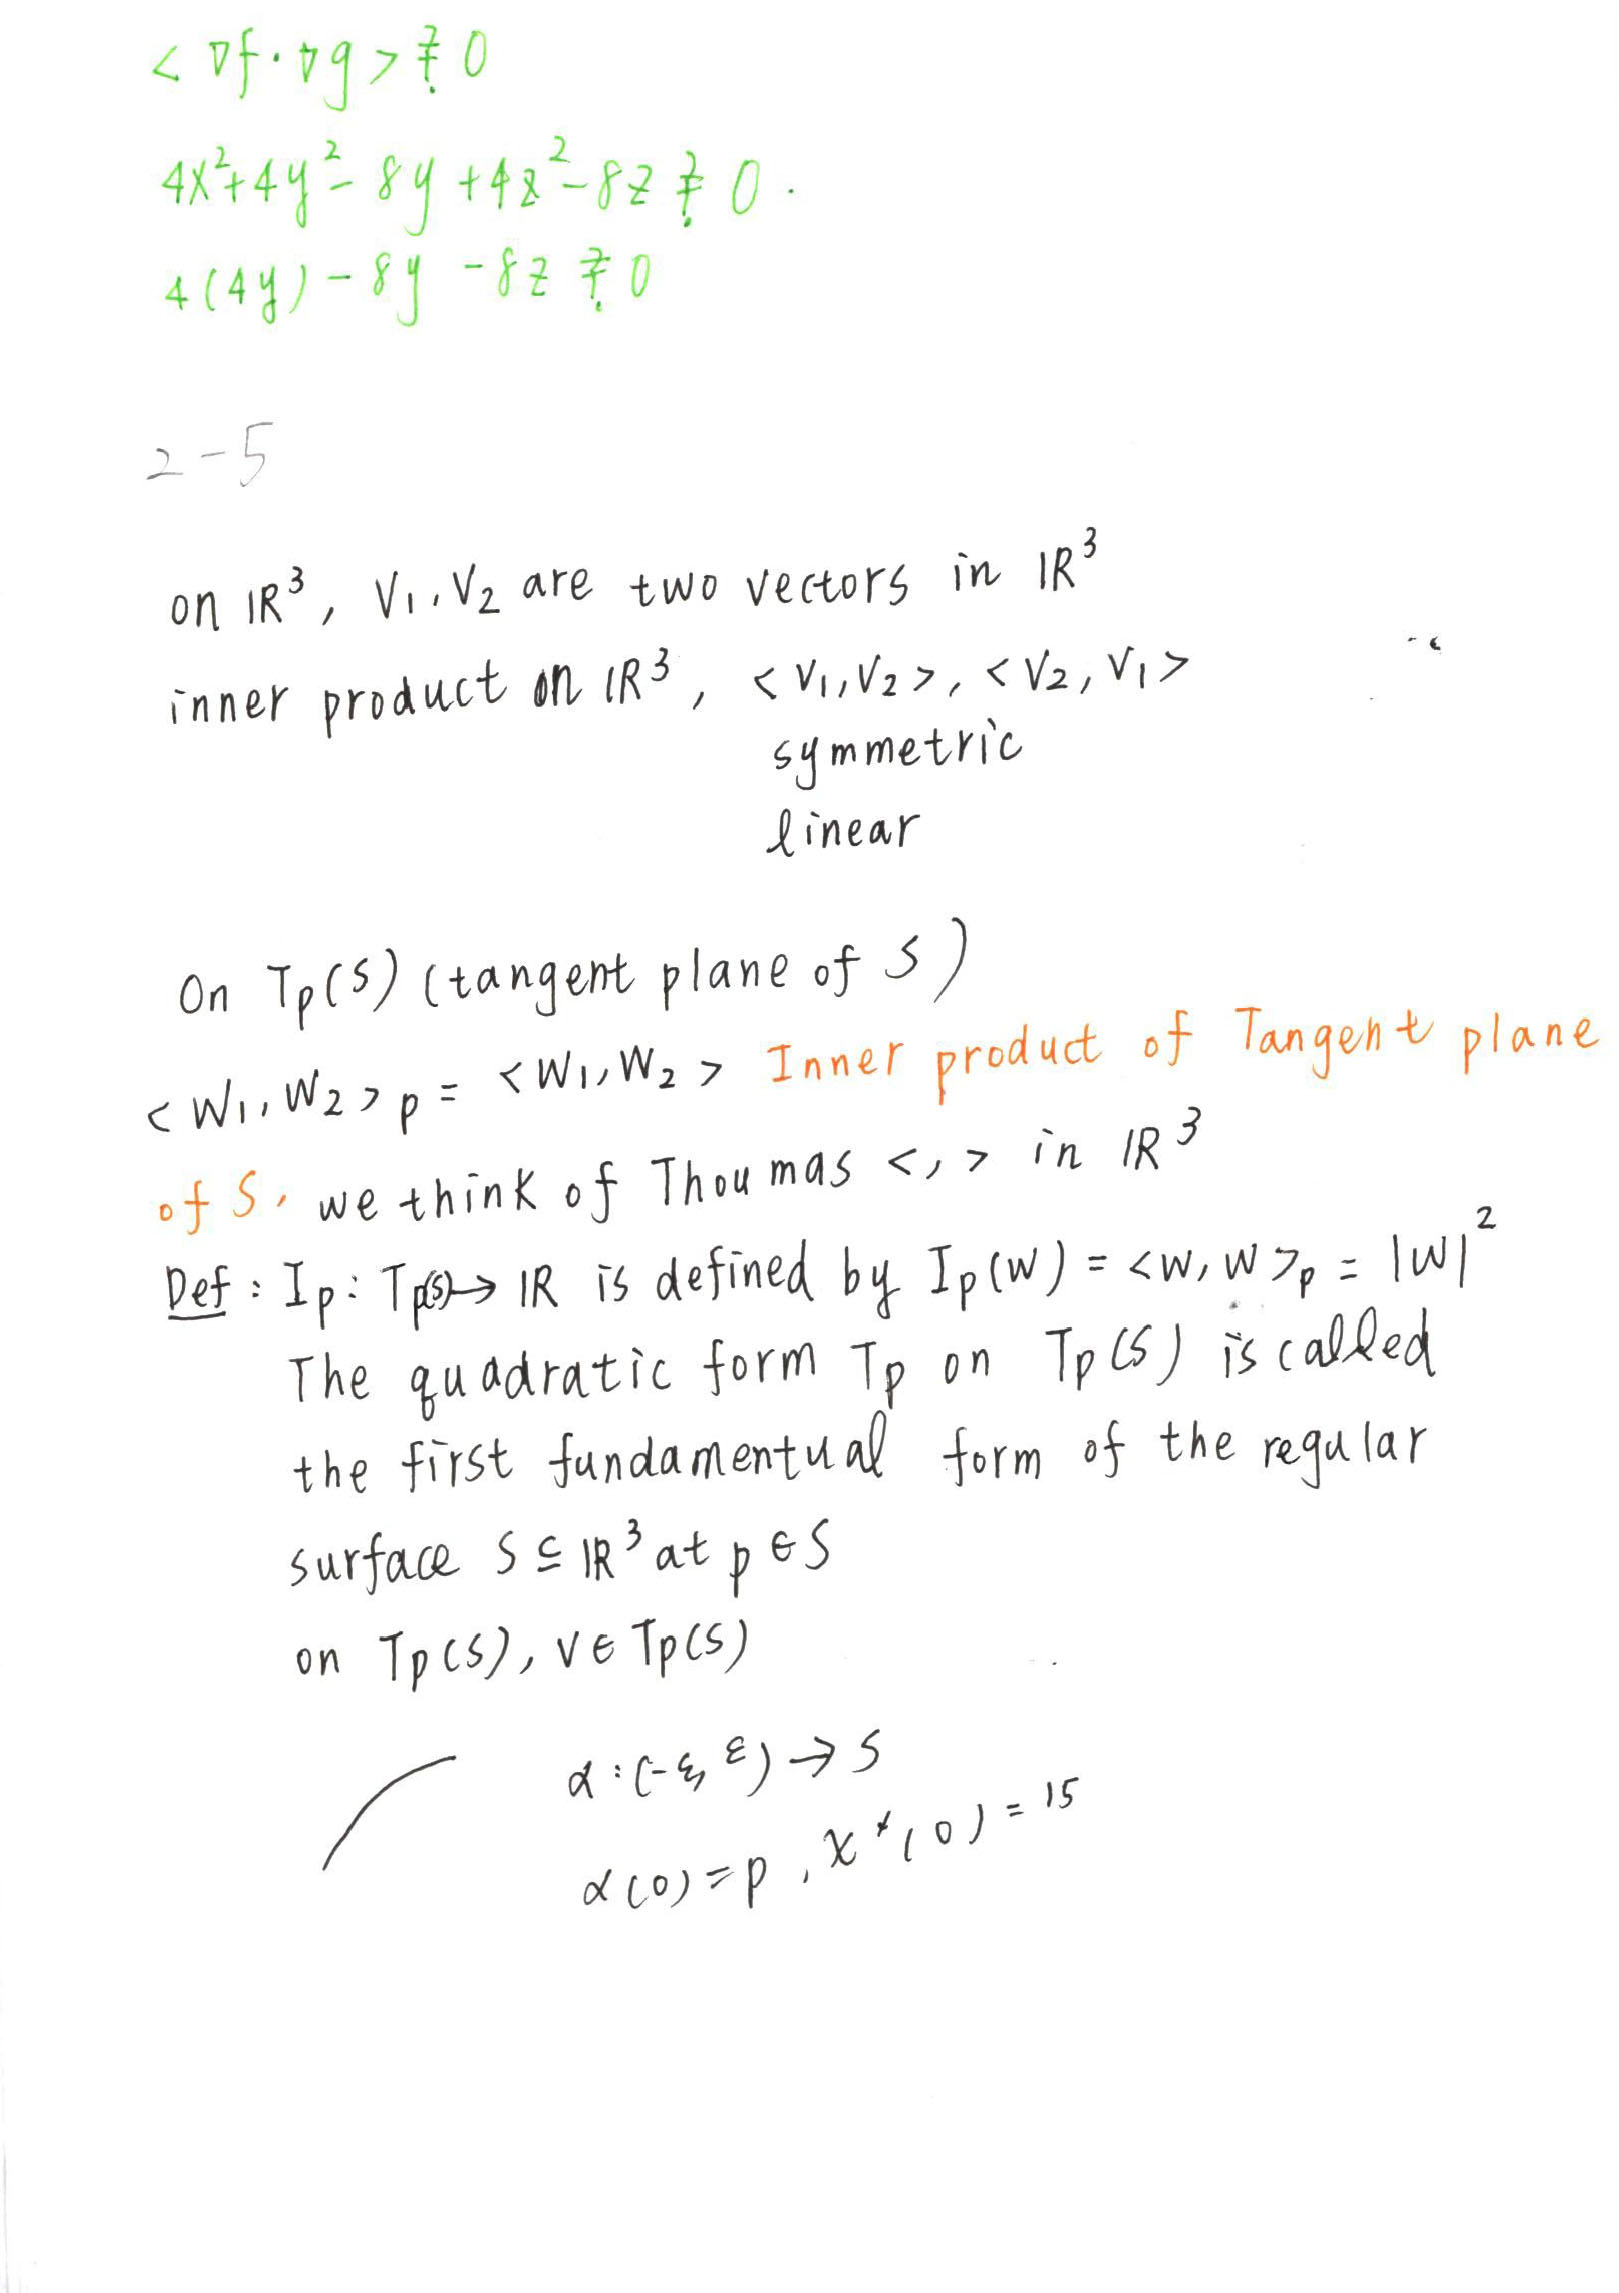 < ∇f·∇g > ≠ 0
4x²+4y²-8y+4z²-8z ≠ 0.
4(4y)-8y-8z ≠ 0
2-5
on IR³, V₁,V₂ are two vectors in IR³
inner product on IR³, <V₁,V₂>, <V₂,V₁>
symmetric
linear
On Tp(S) (tangent plane of S)
<W₁,W₂>p = <W₁,W₂> Inner product of Tangent plane
of S, we think of Thoumas <,> in IR³
Def: Ip: Tp(S)→IR is defined by Ip(W) = <W,W>p = |W|²
The quadratic form Tp on Tp(S) is called
the first fundamentual form of the regular
surface S ⊆ IR³ at p∈S
on Tp(S), V∈Tp(S)
α:(-ε, ε)→S
α(0)=p,